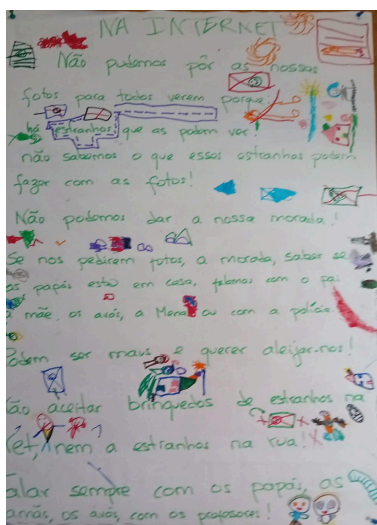 NA INTERNET
Não pudemos pôr as nossas
fotos para todos verem porque
há estranhos que as podem ver.
não sabemos o que esses estranhos podem
fazer com as fotos!
Não podemos dar a nossa morada!
Se nos pedirem fotos, a morada, saber se
os papás estão em casa, falamos com o pai
a mãe, os avós, a Mena ou com a polícia.
Podem ser maus e querer aleijar-nos!
Não aceitar brinquedos de estranhos na
net, nem a estranhos na rua!
alar sempre com os papás, as
os avós, com os professores!